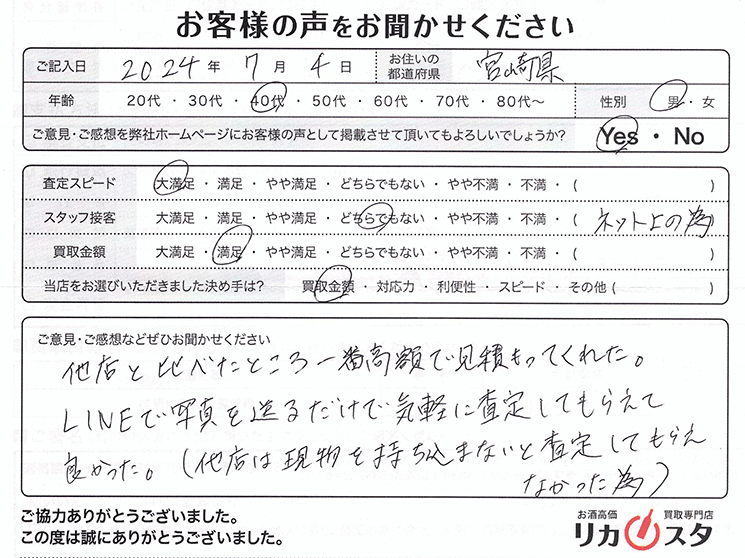 お客様の声をお聞かせください
ご記入日 2024 年 7 月 4 日 お住いの都道府県 宮崎県
年齢 20代 ・ 30代 ・ 40代 ・ 50代 ・ 60代 ・ 70代 ・ 80代～ 性別 男 ・ 女
ご意見・ご感想を弊社ホームページにお客様の声として掲載させて頂いてもよろしいでしょうか? Yes ・ No
査定スピード 大満足 ・ 満足 ・ やや満足 ・ どちらでもない ・ やや不満 ・ 不満 ・ ( )
スタッフ接客 大満足 ・ 満足 ・ やや満足 ・ どちらでもない ・ やや不満 ・ 不満 ・ ( ネット上の為 )
買取金額 大満足 ・ 満足 ・ やや満足 ・ どちらでもない ・ やや不満 ・ 不満 ・ ( )
当店をお選びいただきました決め手は? 買取金額 ・ 対応力 ・ 利便性 ・ スピード ・ その他 ( )
ご意見・ご感想などぜひお聞かせください
他店と比べたところ一番高額で見積もってくれた。
LINEで写真を送るだけで気軽に査定してもらえて
良かった。(他店は現物を持ち込まないと査定してもらえ
なかった為)
ご協力ありがとうございました。
この度は誠にありがとうございました。
お酒高価 買取専門店
リカスタ